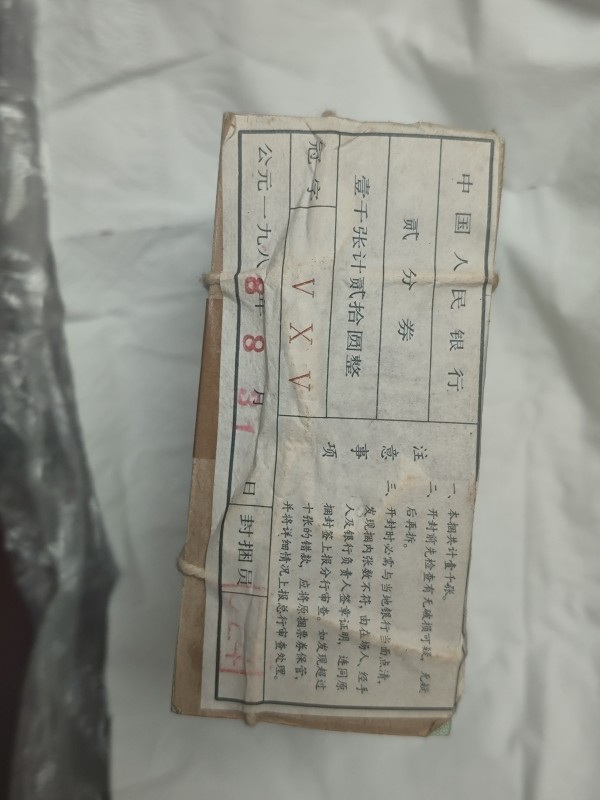 中国人民银行
贰分券
壹千张计贰拾圆整
冠字 V X V
公元一九八8年8月31日 封捆员
注意事项
一、本捆共计壹千张。
二、开封前先检查有无破损可疑，无疑
后再拆。
三、开封时必需与当地银行当面点清，
发现捆内张数不符，由在场人、经手
人及银行负责人签章证明，连同原
捆封签上报分行审查。如发现超过
十张的错款，应将原捆票券保管，
并将详细情况上报总行审查处理。